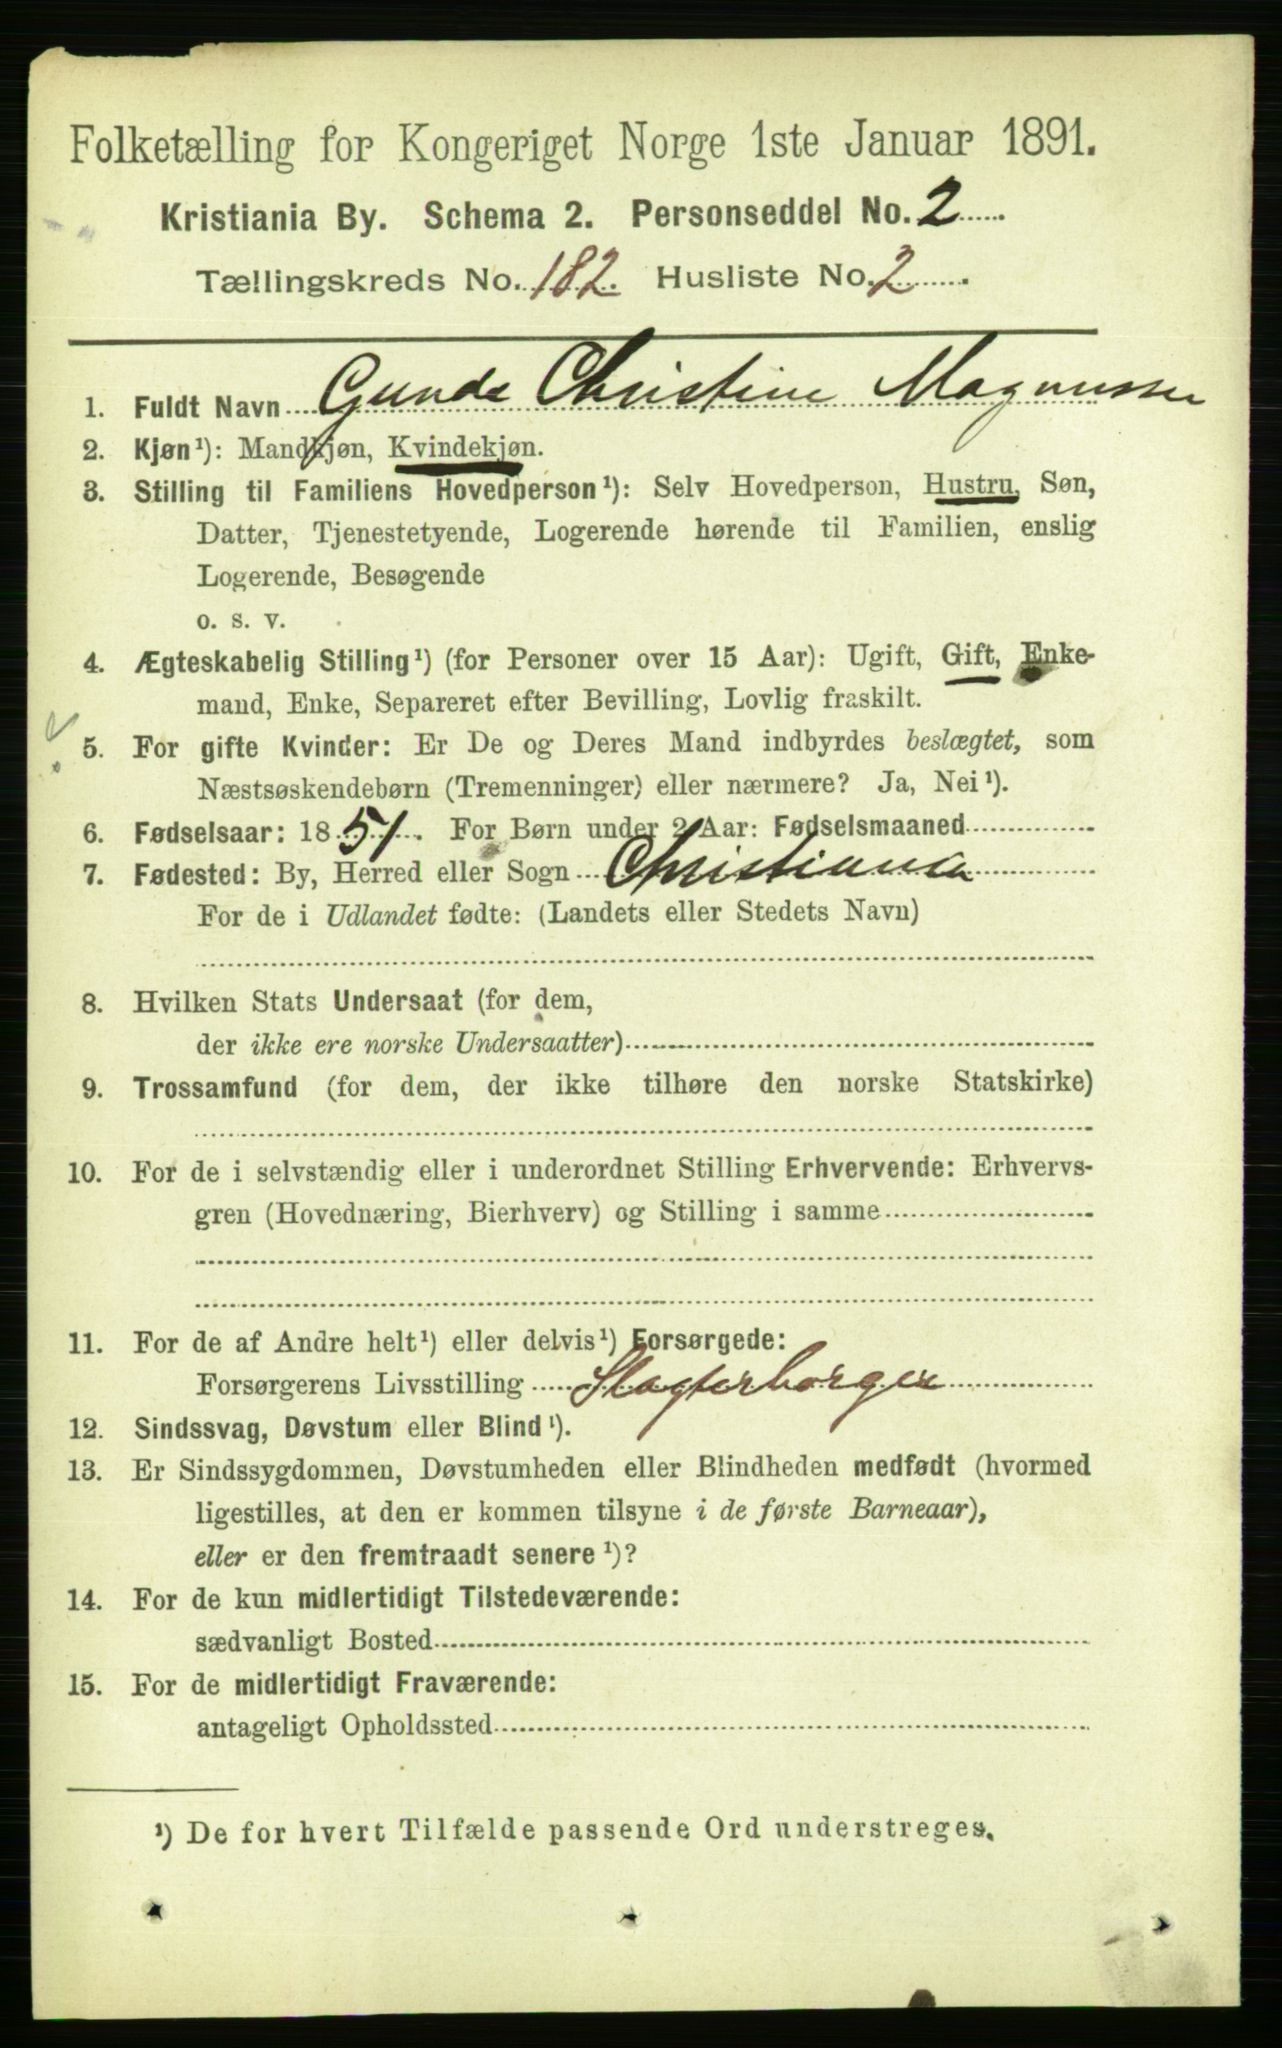 Folketælling for Kongeriget Norge 1ste Januar 1891.
Kristiania By. Schema 2. Personseddel No. 2
Tællingskreds No. 182. Husliste No. 2
1. Fuldt Navn Gunda Christine Magnussen
2. Kjøn¹): Mandkjøn, Kvindekjøn.
3. Stilling til Familiens Hovedperson¹): Selv Hovedperson, Hustru, Søn,
Datter, Tjenestetyende, Logerende hørende til Familien, enslig
Logerende, Besøgende
o. s. v.
4. Ægteskabelig Stilling¹) (for Personer over 15 Aar): Ugift, Gift, Enke-
mand, Enke, Separeret efter Bevilling, Lovlig fraskilt.
5. For gifte Kvinder: Er De og Deres Mand indbyrdes beslægtet, som
Næstsøskendebørn (Tremenninger) eller nærmere? Ja, Nei¹).
6. Fødselsaar: 1851. For Børn under 2 Aar: Fødselsmaaned
7. Fødested: By, Herred eller Sogn Christiania
For de i Udlandet fødte: (Landets eller Stedets Navn)
8. Hvilken Stats Undersaat (for dem,
der ikke ere norske Undersaatter)
9. Trossamfund (for dem, der ikke tilhøre den norske Statskirke)
10. For de i selvstændig eller i underordnet Stilling Erhvervende: Erhvervs-
gren (Hovednæring, Bierhverv) og Stilling i samme
11. For de af Andre helt¹) eller delvis¹) Forsørgede:
Forsørgerens Livsstilling Slagterborger
12. Sindssvag, Døvstum eller Blind¹).
13. Er Sindssygdommen, Døvstumheden eller Blindheden medfødt (hvormed
ligestilles, at den er kommen tilsyne i de første Barneaar),
eller er den fremtraadt senere¹)?
14. For de kun midlertidigt Tilstedeværende:
sædvanligt Bosted
15. For de midlertidigt Fraværende:
antageligt Opholdssted
¹) De for hvert Tilfælde passende Ord understreges.